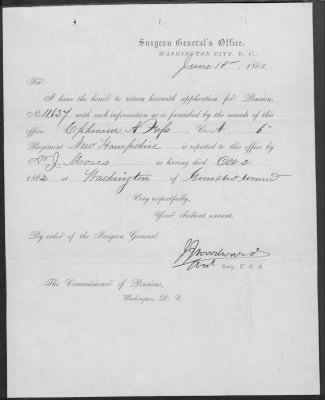 Surgeon General's Office,
WASHINGTON CITY, D. C.,
June 18", 1863.
Sir:
I have the honor to return herewith application for Pension,
No 11,627, with such information as is furnished by the records of this
office. Ephraim A Foss Co. A. 5"
Regiment New Hampshire is reported to this office by
J. Moses as having died Oct 2
1862 at Washington of Gunshot wound
Very respectfully,
Your obedient servant,
By order of the Surgeon General:
J J Woodward
Asst Surg. U. S. A.
The Commissioner of Pensions,
Washington, D. C.